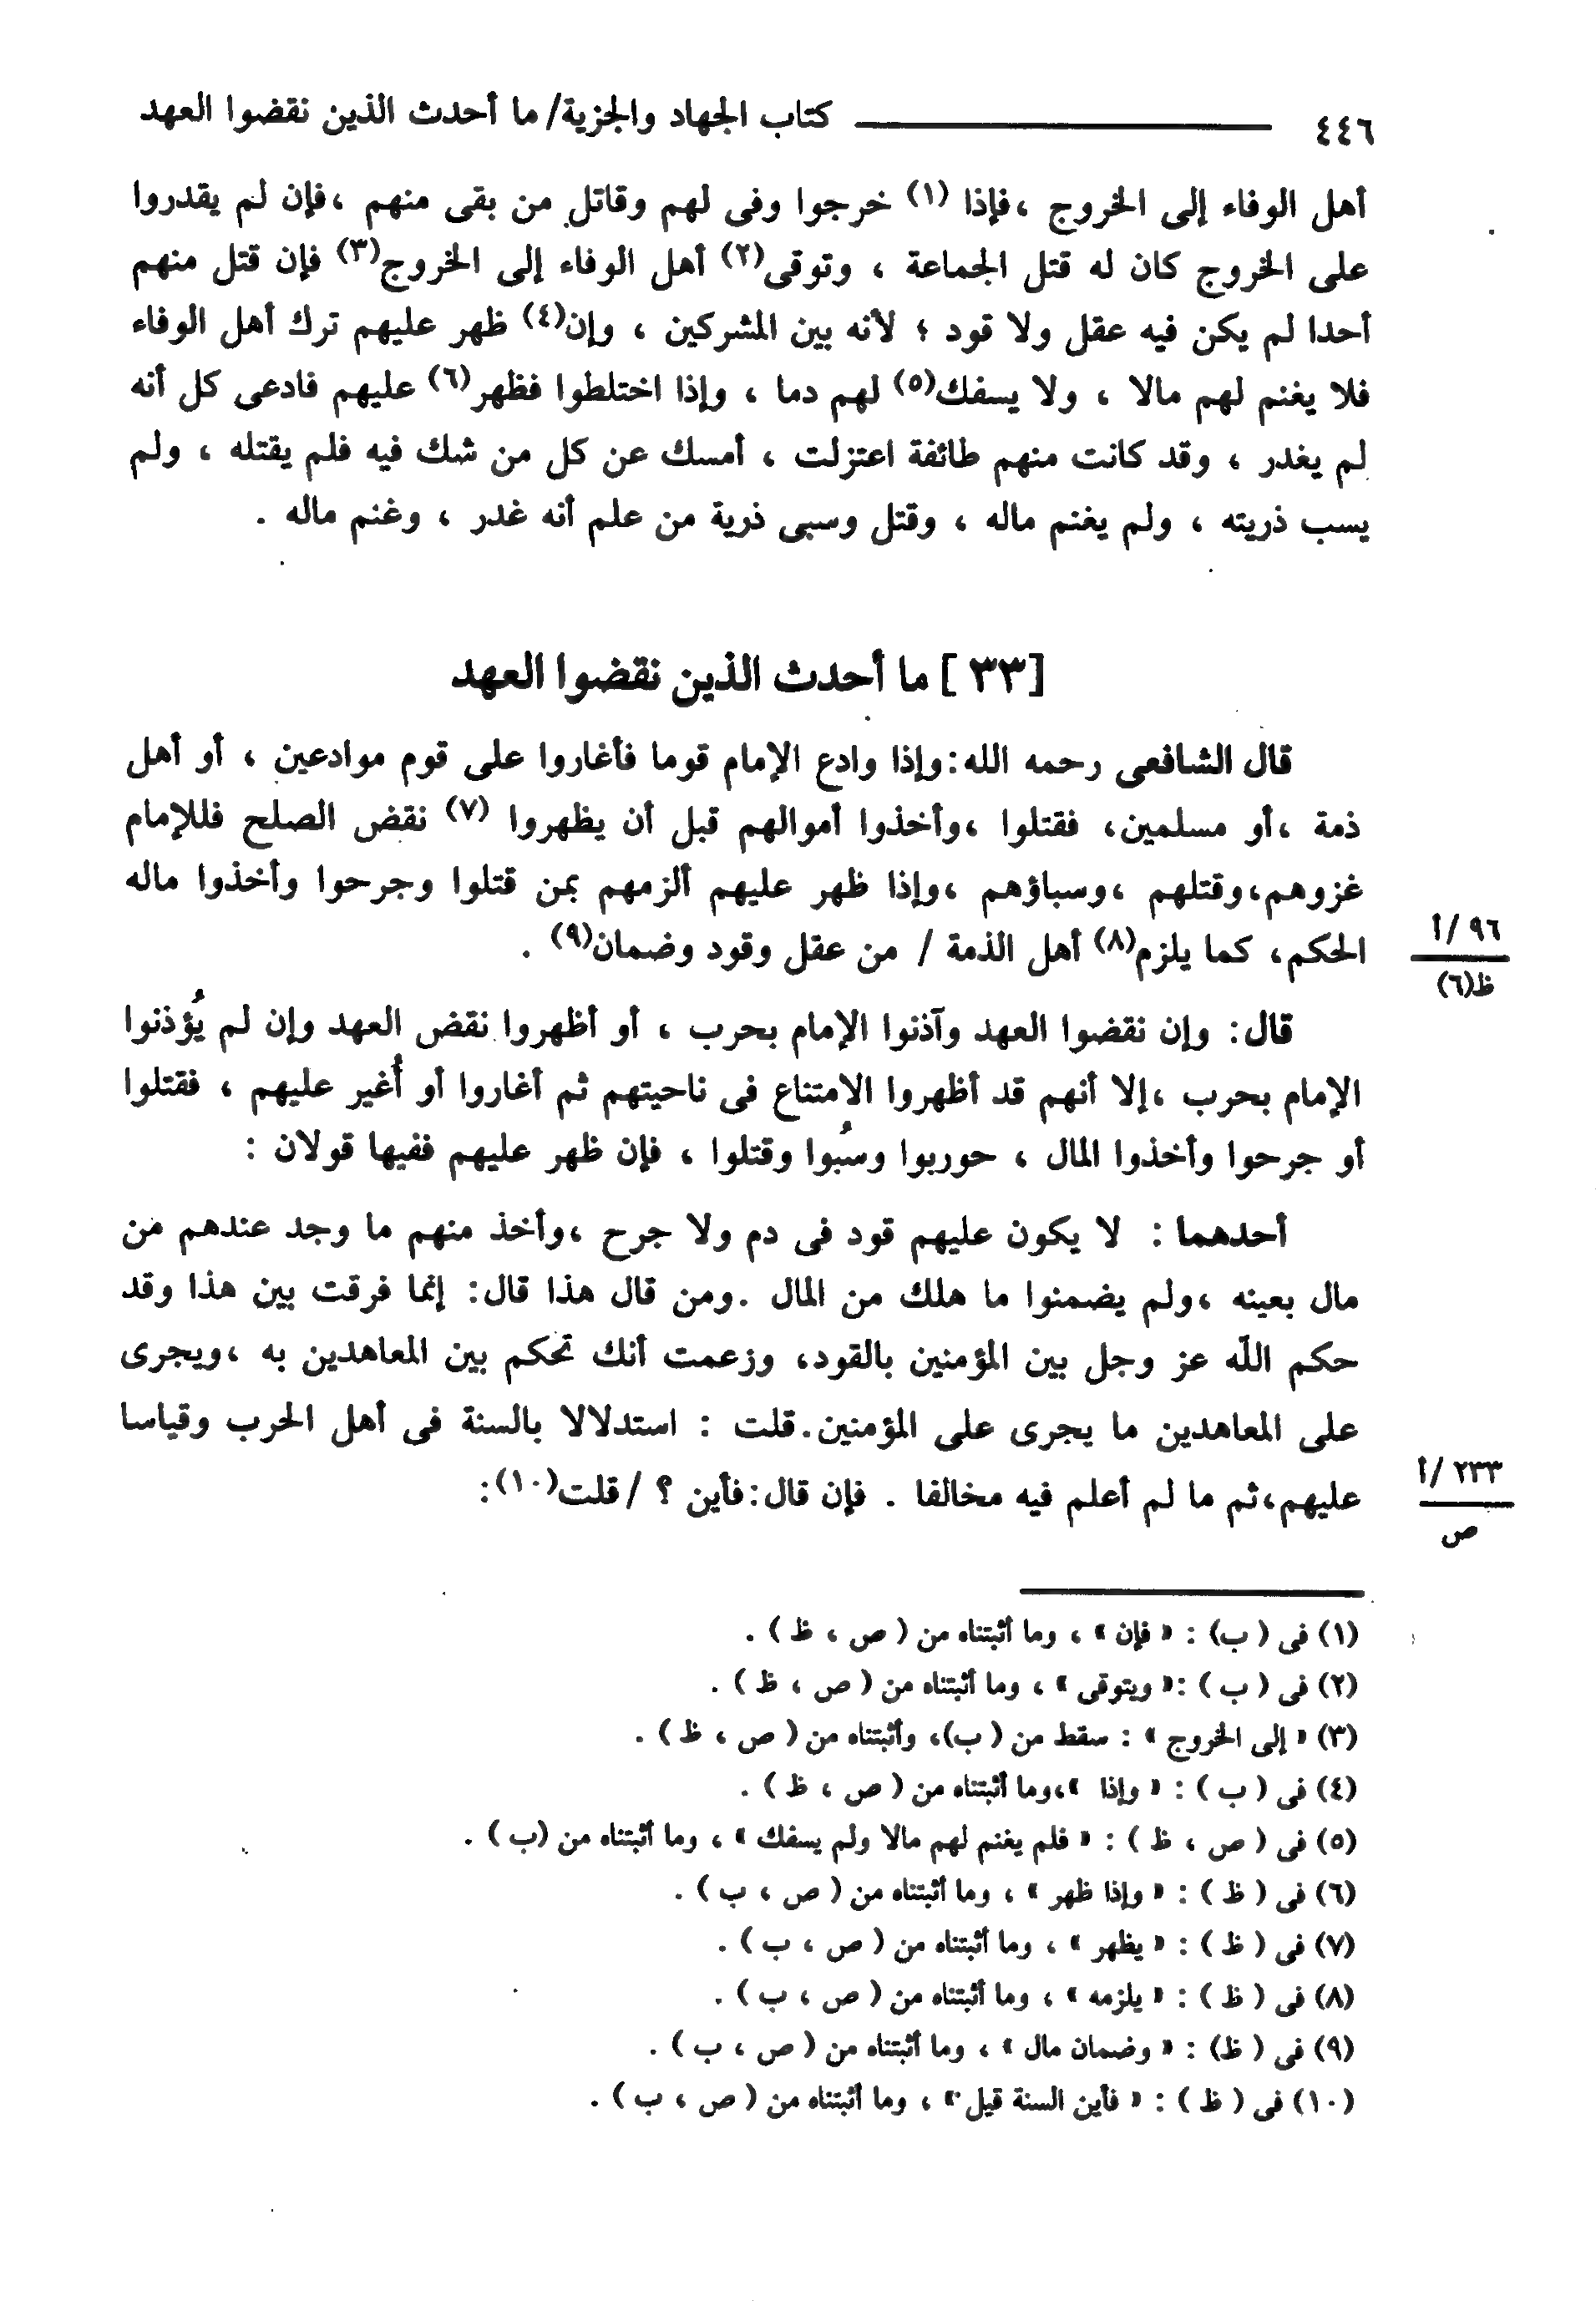 ٤٤٦ كتاب الجهاد والجزية/ ما أحدث الذين نقضوا العهد
أهل الوفاء إلى الخروج ،فإذا (١) خرجوا وفى لهم وقاتل من بقى منهم ،فإن لم يقدروا
على الخروج كان له قتل الجماعة ، وتوقى(٢) أهل الوفاء إلى الخروج(٣) فإن قتل منهم
أحدا لم يكن فيه عقل ولا قود ؛ لأنه بين المشركين ، وإن(٤) ظهر عليهم ترك أهل الوفاء
فلا يغنم لهم مالا ، ولا يسفك(٥) لهم دما ، وإذا اختلطوا فظهر(٦) عليهم فادعى كل أنه
لم يغدر ، وقد كانت منهم طائفة اعتزلت ، أمسك عن كل من شك فيه فلم يقتله ، ولم
يسب ذريته ، ولم يغنم ماله ، وقتل وسبى ذرية من علم أنه غدر ، وغنم ماله .
[٣٣ ] ما أحدث الذين نقضوا العهد
قال الشافعى رحمه الله:وإذا وادع الإمام قوما فأغاروا على قوم موادعين ، أو أهل
ذمة ،أو مسلمين، فقتلوا ،وأخذوا أموالهم قبل أن يظهروا (٧) نقض الصلح فللإمام
غزوهم،وقتلهم ،وسباؤهم ،وإذا ظهر عليهم ألزمهم بمن قتلوا وجرحوا وأخذوا ماله
الحكم، كما يلزم(٨) أهل الذمة / من عقل وقود وضمان(٩) .
٩٦ /أ
ظ(٦)
قال: وإن نقضوا العهد وآذنوا الإمام بحرب ، أو أظهروا نقض العهد وإن لم يُؤذنوا
الإمام بحرب ،إلا أنهم قد أظهروا الامتناع فى ناحيتهم ثم أغاروا أو أُغير عليهم ، فقتلوا
أو جرحوا وأخذوا المال ، حوربوا وسُبوا وقتلوا ، فإن ظهر عليهم ففيها قولان :
أحدهما : لا يكون عليهم قود فى دم ولا جرح ،وأخذ منهم ما وجد عندهم من
مال بعينه ،ولم يضمنوا ما هلك من المال .ومن قال هذا قال: إنما فرقت بين هذا وقد
حكم اللّه عز وجل بين المؤمنين بالقود، وزعمت أنك تحكم بين المعاهدين به ،ويجرى
على المعاهدين ما يجرى على المؤمنين.قلت : استدلالا بالسنة فى أهل الحرب وقياسا
عليهم،ثم ما لم أعلم فيه مخالفا . فإن قال:فأين ؟ /قلت(١٠):
٢٣٣ /أ
ص
(١) فى ( ب) : « فإن » ، وما أثبتناه من ( ص ، ظ ) .
(٢) فى ( ب ) :« ويتوقى » ، وما أثبتناه من ( ص ، ظ ) .
(٣) « إلى الخروج » : سقط من ( ب)، وأثبتناه من ( ص ، ظ ) .
(٤) فى ( ب ) : « وإذا »،وما أثبتناه من ( ص ، ظ ) .
(٥) فى ( ص ، ظ ) : « فلم يغنم لهم مالا ولم يسفك » ، وما أثبتناه من (ب ) .
(٦) فى ( ظ ) : « وإذا ظهر » ، وما أثبتناه من ( ص ، ب ) .
(٧) فى ( ظ ) : « يظهر » ، وما أثبتناه من ( ص ، ب ) .
(٨) فى ( ظ ) : « يلزمه » ، وما أثبتناه من ( ص ، ب ) .
(٩) فى ( ظ) : « وضمان مال » ، وما أثبتناه من ( ص ، ب ) .
(١٠) فى ( ظ ) : « فأين السنة قيل » ، وما أثبتناه من ( ص ، ب ) .